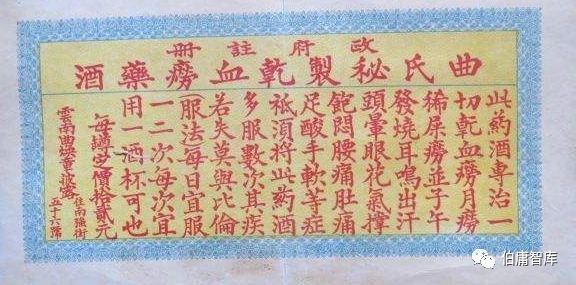 政府註冊
曲氏秘製乾血癆藥酒
此葯酒專治一
切乾血癆月癆
稀屎癆並子午
發燒耳鳴出汗
頭暈眼花氣撑
飽悶腰痛肚痛
足酸手軟等症
祗須將此葯酒
多服數次其疾
若失莫與比倫
服法每日宜服
一二次每次宜
用一酒杯可也
每罇定價拾貳元
雲南曲煥章
住南強街
五十六號
伯庸智库